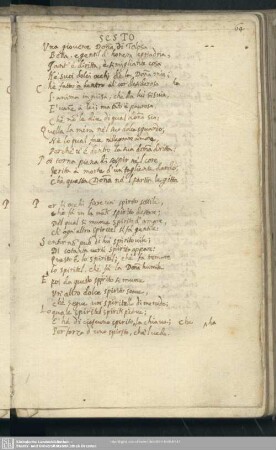 64
SESTO
Una giovene Donna di Tolosa,
Bella, e gentil d'honesta leggiadria,
Tant' è diritta, e simigliante cosa
Ne suoi dolci occhi de la Donna mia;
Che fatto ha dentro al cor desiderosa
L'anima in guisa, che da lui si svia
E vanne a lei; ma tant' è paurosa,
Che no le dice di qual donna sia.
Quella la mira nel suo dolce sguardo,
Ne lo qual fa
Perche v'è dentro la sua Donna dritta.
Poi torna piena di sospir nel core,
Ferita a morte d'un tagliente dardo,
Che questa Donna nel partir li gitta.
Per li occhi fiere un spirito sottile,
Che fa in la mente spirito destare;
Dal qual si move spirito d'amare,
Ch'ogn'altro spiritel si fa gentile.
Sentir non può di lui spirito vile;
Di cotanta vertù spirito appare:
Quest'è lo spiritel, che fa tremare
Lo spiritel, che fa la Donna humile.
E poi da questo spirito si move
Un'altro dolce spirito soave,
Che segue un spiritello di mercede:
Lo quale spiritel spiriti piove;
C'ha di ciascuno spirito la chiave;
Per forza d'uno spirito, che 'l vede.